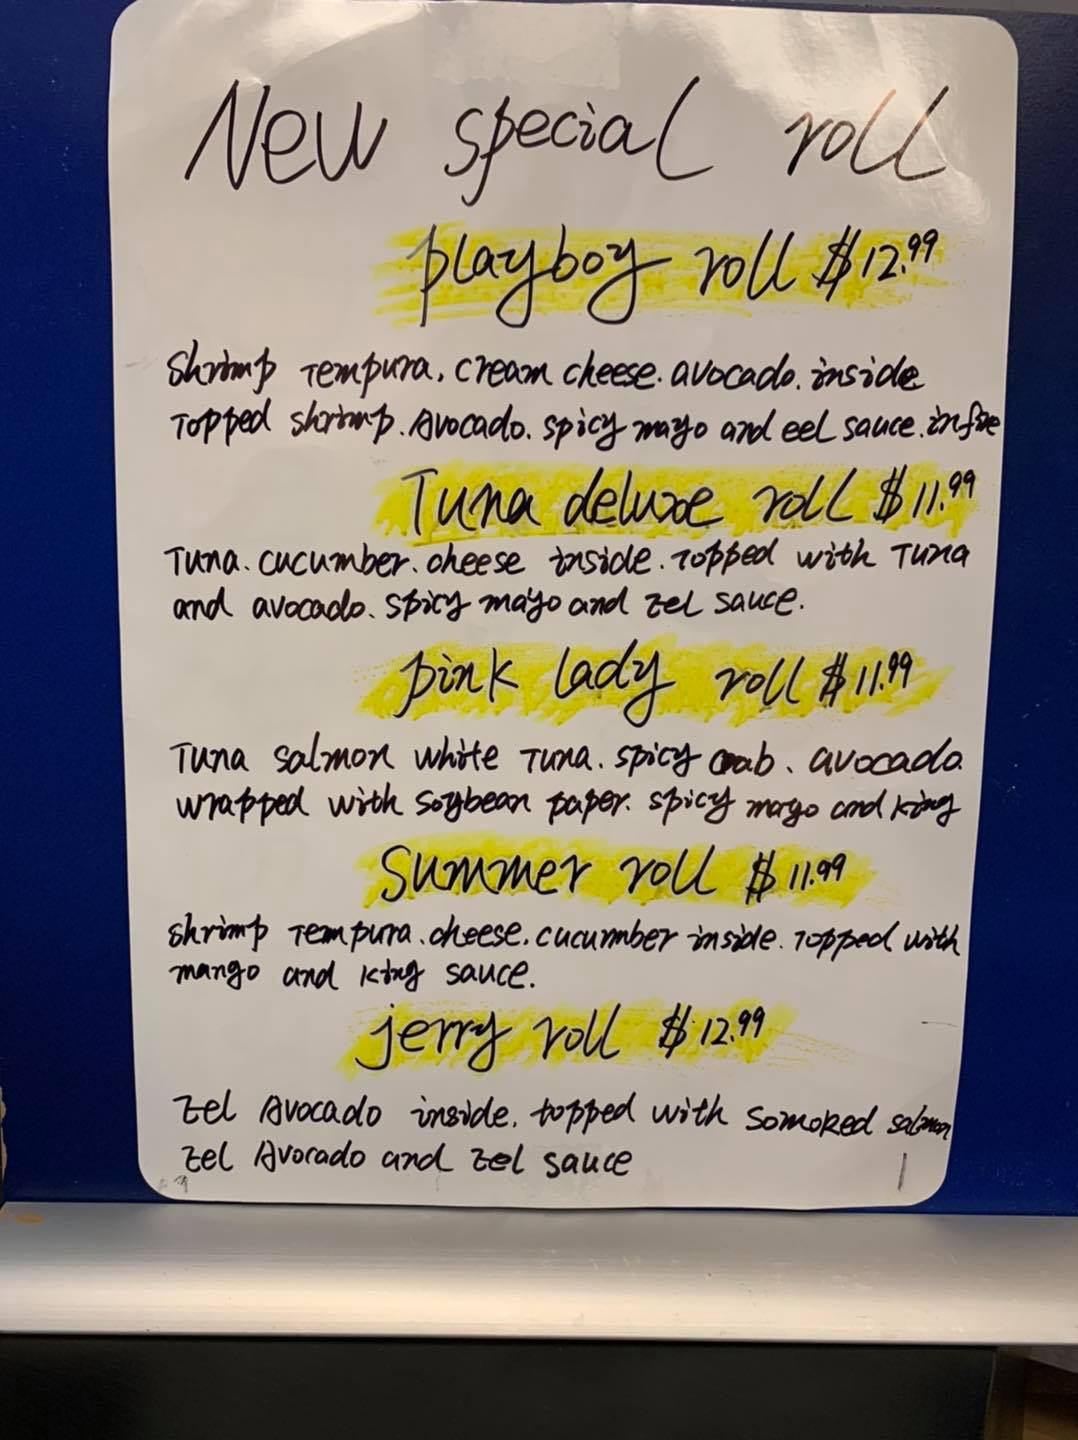 New special roll
playboy roll $12.99
shrimp Tempura. cream cheese. avocado. inside
Topped shrimp. Avocado. spicy mayo and eel sauce. infire
Tuna deluxe roll $11.99
Tuna. cucumber. cheese inside. Topped with Tuna
and avocado. spicy mayo and Eel sauce.
pink lady roll $11.99
Tuna salmon white Tuna. spicy crab. avocado.
wrapped with soybean paper. spicy mayo and king
Summer roll $11.99
shrimp Tempura. cheese. cucumber inside. Topped with
mango and king sauce.
jerry roll $12.99
Eel Avocado inside. topped with somoked salmon
Eel Avorado and Eel sauce